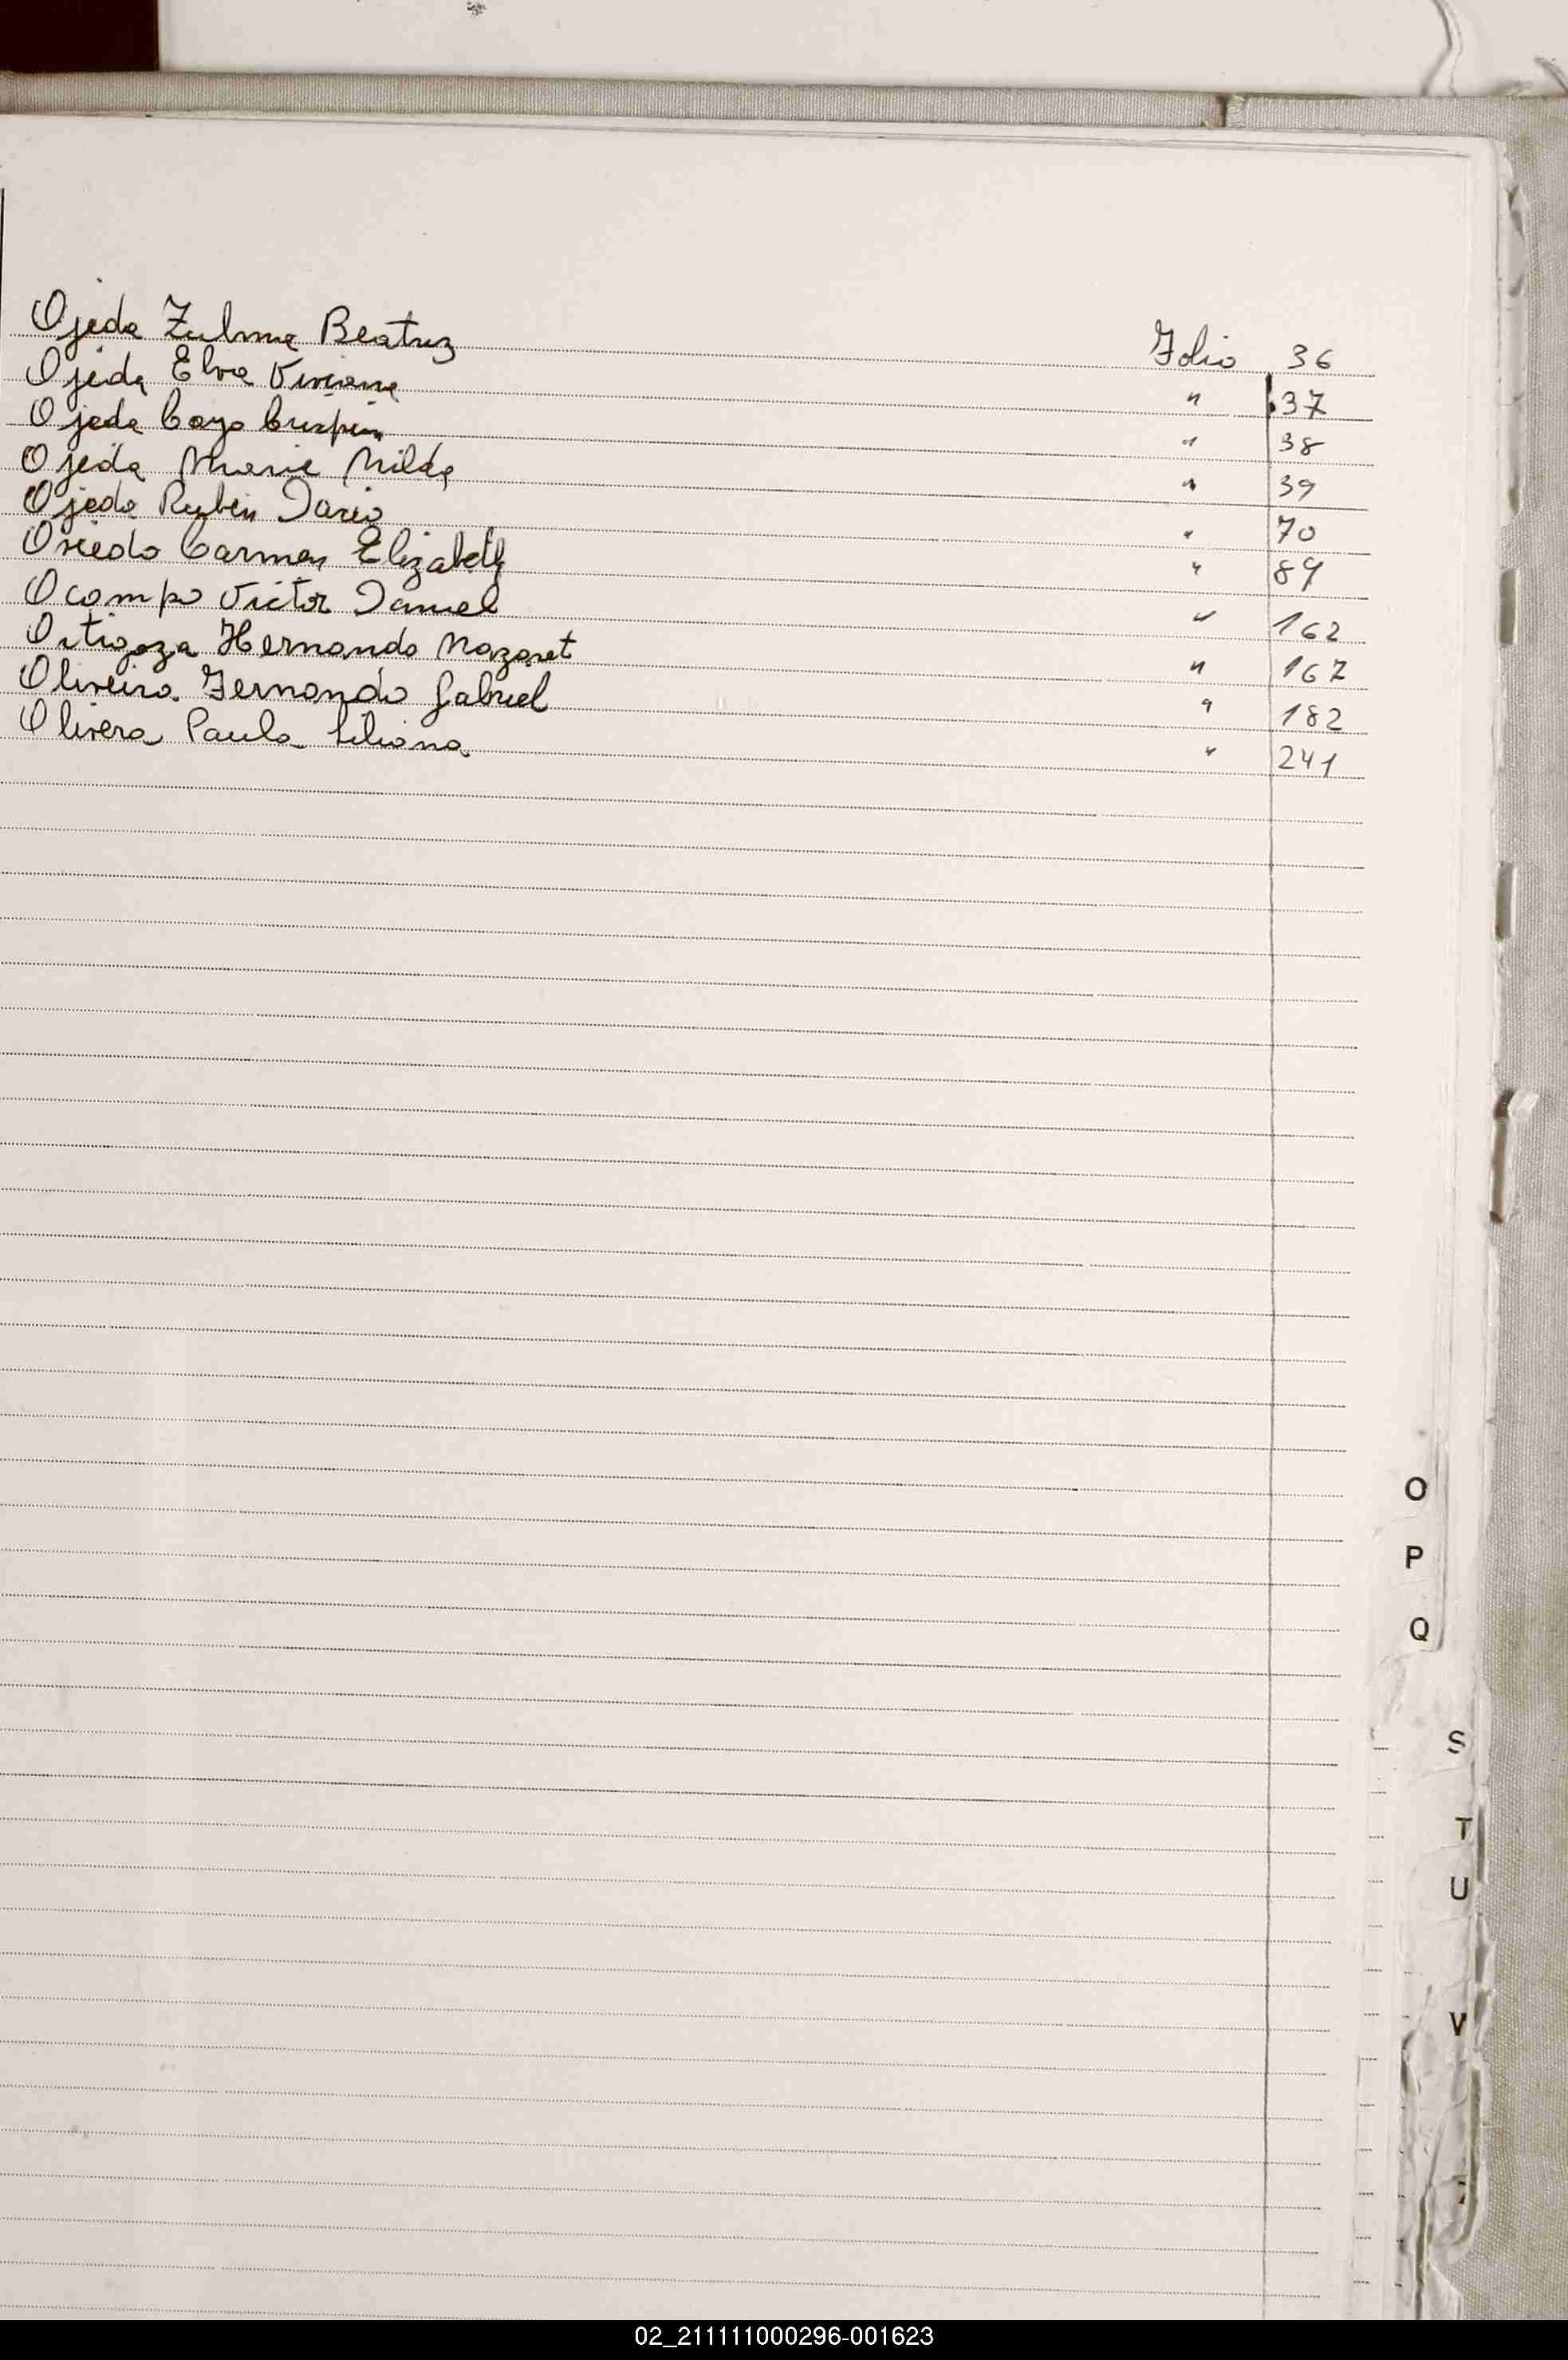 Ojeda Zulma Beatriz Folio 36
Ojeda Elva Viviana " 37
Ojeda Cayo Crispin " 38
Ojeda Maria Nilda " 39
Ojeda Ruben Dario " 70
Oviedo Carmen Elizabeth " 89
Ocampo Victor Daniel " 162
Ortigoza Hernando Nazaret " 167
Oliveira Fernando Gabriel " 182
Olivera Paula Liliana " 241
O
P
Q
S
T
U
W
02_211111000296-001623